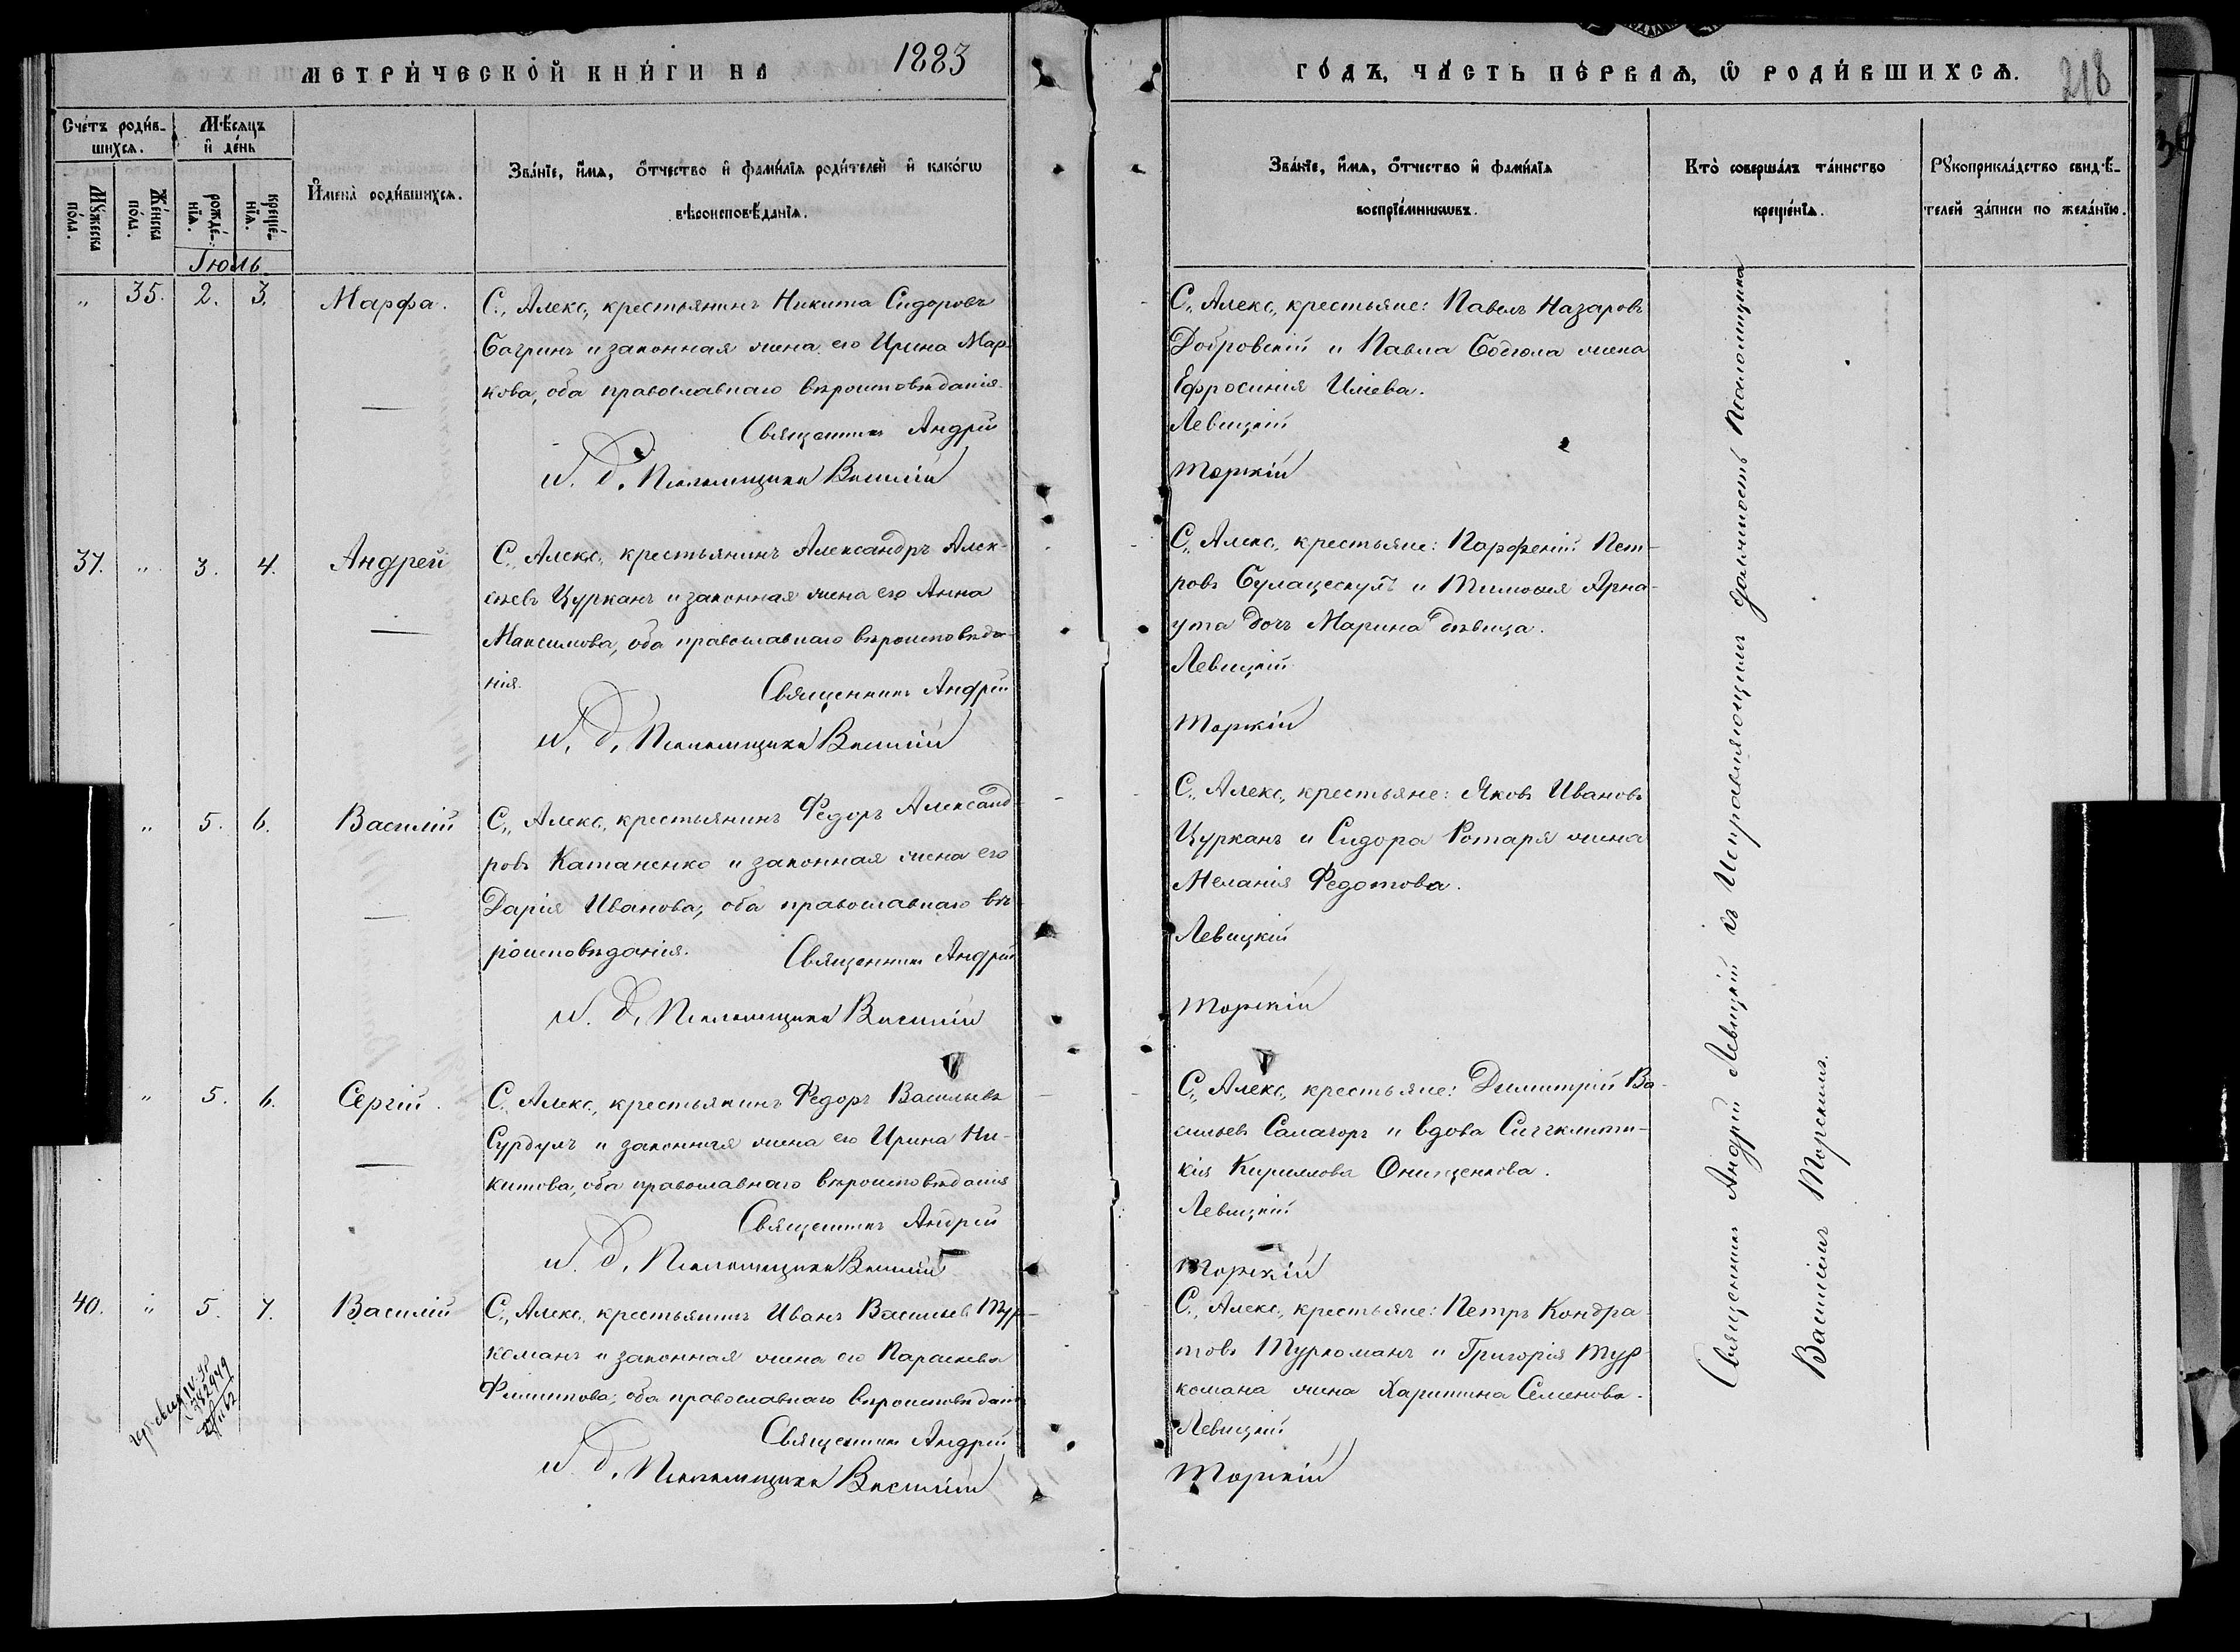 МЕТРИЧЕСКОЙ КНИГИ НА 1883
ГОДЪ, ЧАСТЬ ПЕРВАЯ, Ѿ РОДИВШИХСЯ. 218
Счетъ родив-
шихся.
Мужеска
пола.
Женска
пола.
Мѣсяцъ
и день
рожде-
нія.
креще-
нія.
Імена родившихся.
Званіе, имя, отчество и фамилія родителей и какогѡ
вѣроисповѣданія.
Званіе, имя, отчество и фамилія
воспріемникѡвъ.
Кто совершалъ таинство
крещенія.
Рукоприкладство свидѣ-
телей записи по желанію.
Іюль
„ 35. 2. 3. Марфа.
С. Алекс., крестьянинъ Никита Сидоровъ
Багринъ и законная жена его Ирина Мар-
кова, оба православнаго вѣроисповѣданія.
Священникъ Андрей
и. д. Псаломщика Василій
С. Алекс., крестьяне: Павелъ Назаровъ
Добровскій и Павла Бодюла жена
Ефросинія Иліева.
Левицкій
Торскій
37. „ 3. 4. Андрей
С. Алекс., крестьянинъ Александръ Алек-
сѣевъ Цурканъ и законная жена его Анна
Максимова, оба православнаго вѣроисповѣда-
нія.
Священникъ Андрей
и. д. Псаломщика Василій
С. Алекс., крестьяне: Парфеній Пет-
ровъ Булацескулъ и Тимофея Арна-
ута дочь Марина дѣвица.
Левицкій
Торскій
„ 5. 6. Василій
С. Алекс., крестьянинъ Федоръ Александ-
ровъ Катаненко и законная жена его
Дарія Иванова, оба православнаго вѣ-
роисповѣданія.
Священникъ Андрей
и. д. Псаломщика Василій
С. Алекс., крестьяне: Яковъ Ивановъ
Цурканъ и Сидора Ротаря жена
Меланія Федотова.
Левицкій
Торскій
„ 5. 6. Сергій.
С. Алекс., крестьянинъ Федоръ Васильевъ
Сурдулъ и законная жена его Ирина Ни-
китова, оба православнаго вѣроисповѣданія
Священникъ Андрей
и. д. Псаломщика Василій
С. Алекс., крестьяне: Димитрій Ва-
сильевъ Салагоръ и вдова Сигклити-
кія Кириллова Онищенкова.
Левицкій
Торскій
40. „ 5. 7. Василій
С. Алекс., крестьянинъ Иванъ Васильевъ Тур-
команъ и законная жена его Параскева
Филиппова, оба православнаго вѣроисповѣданія
Священникъ Андрей
и. д. Псаломщика Василій
С. Алекс., крестьяне: Петръ Кондра-
товъ Туркоманъ и Григорія Тур-
комана жена Харитина Семенова.
Левицкій
Торскій
Священникъ Андрей Левицкій съ Исправляющимъ должность Псаломщика
Василіемъ Торскимъ.